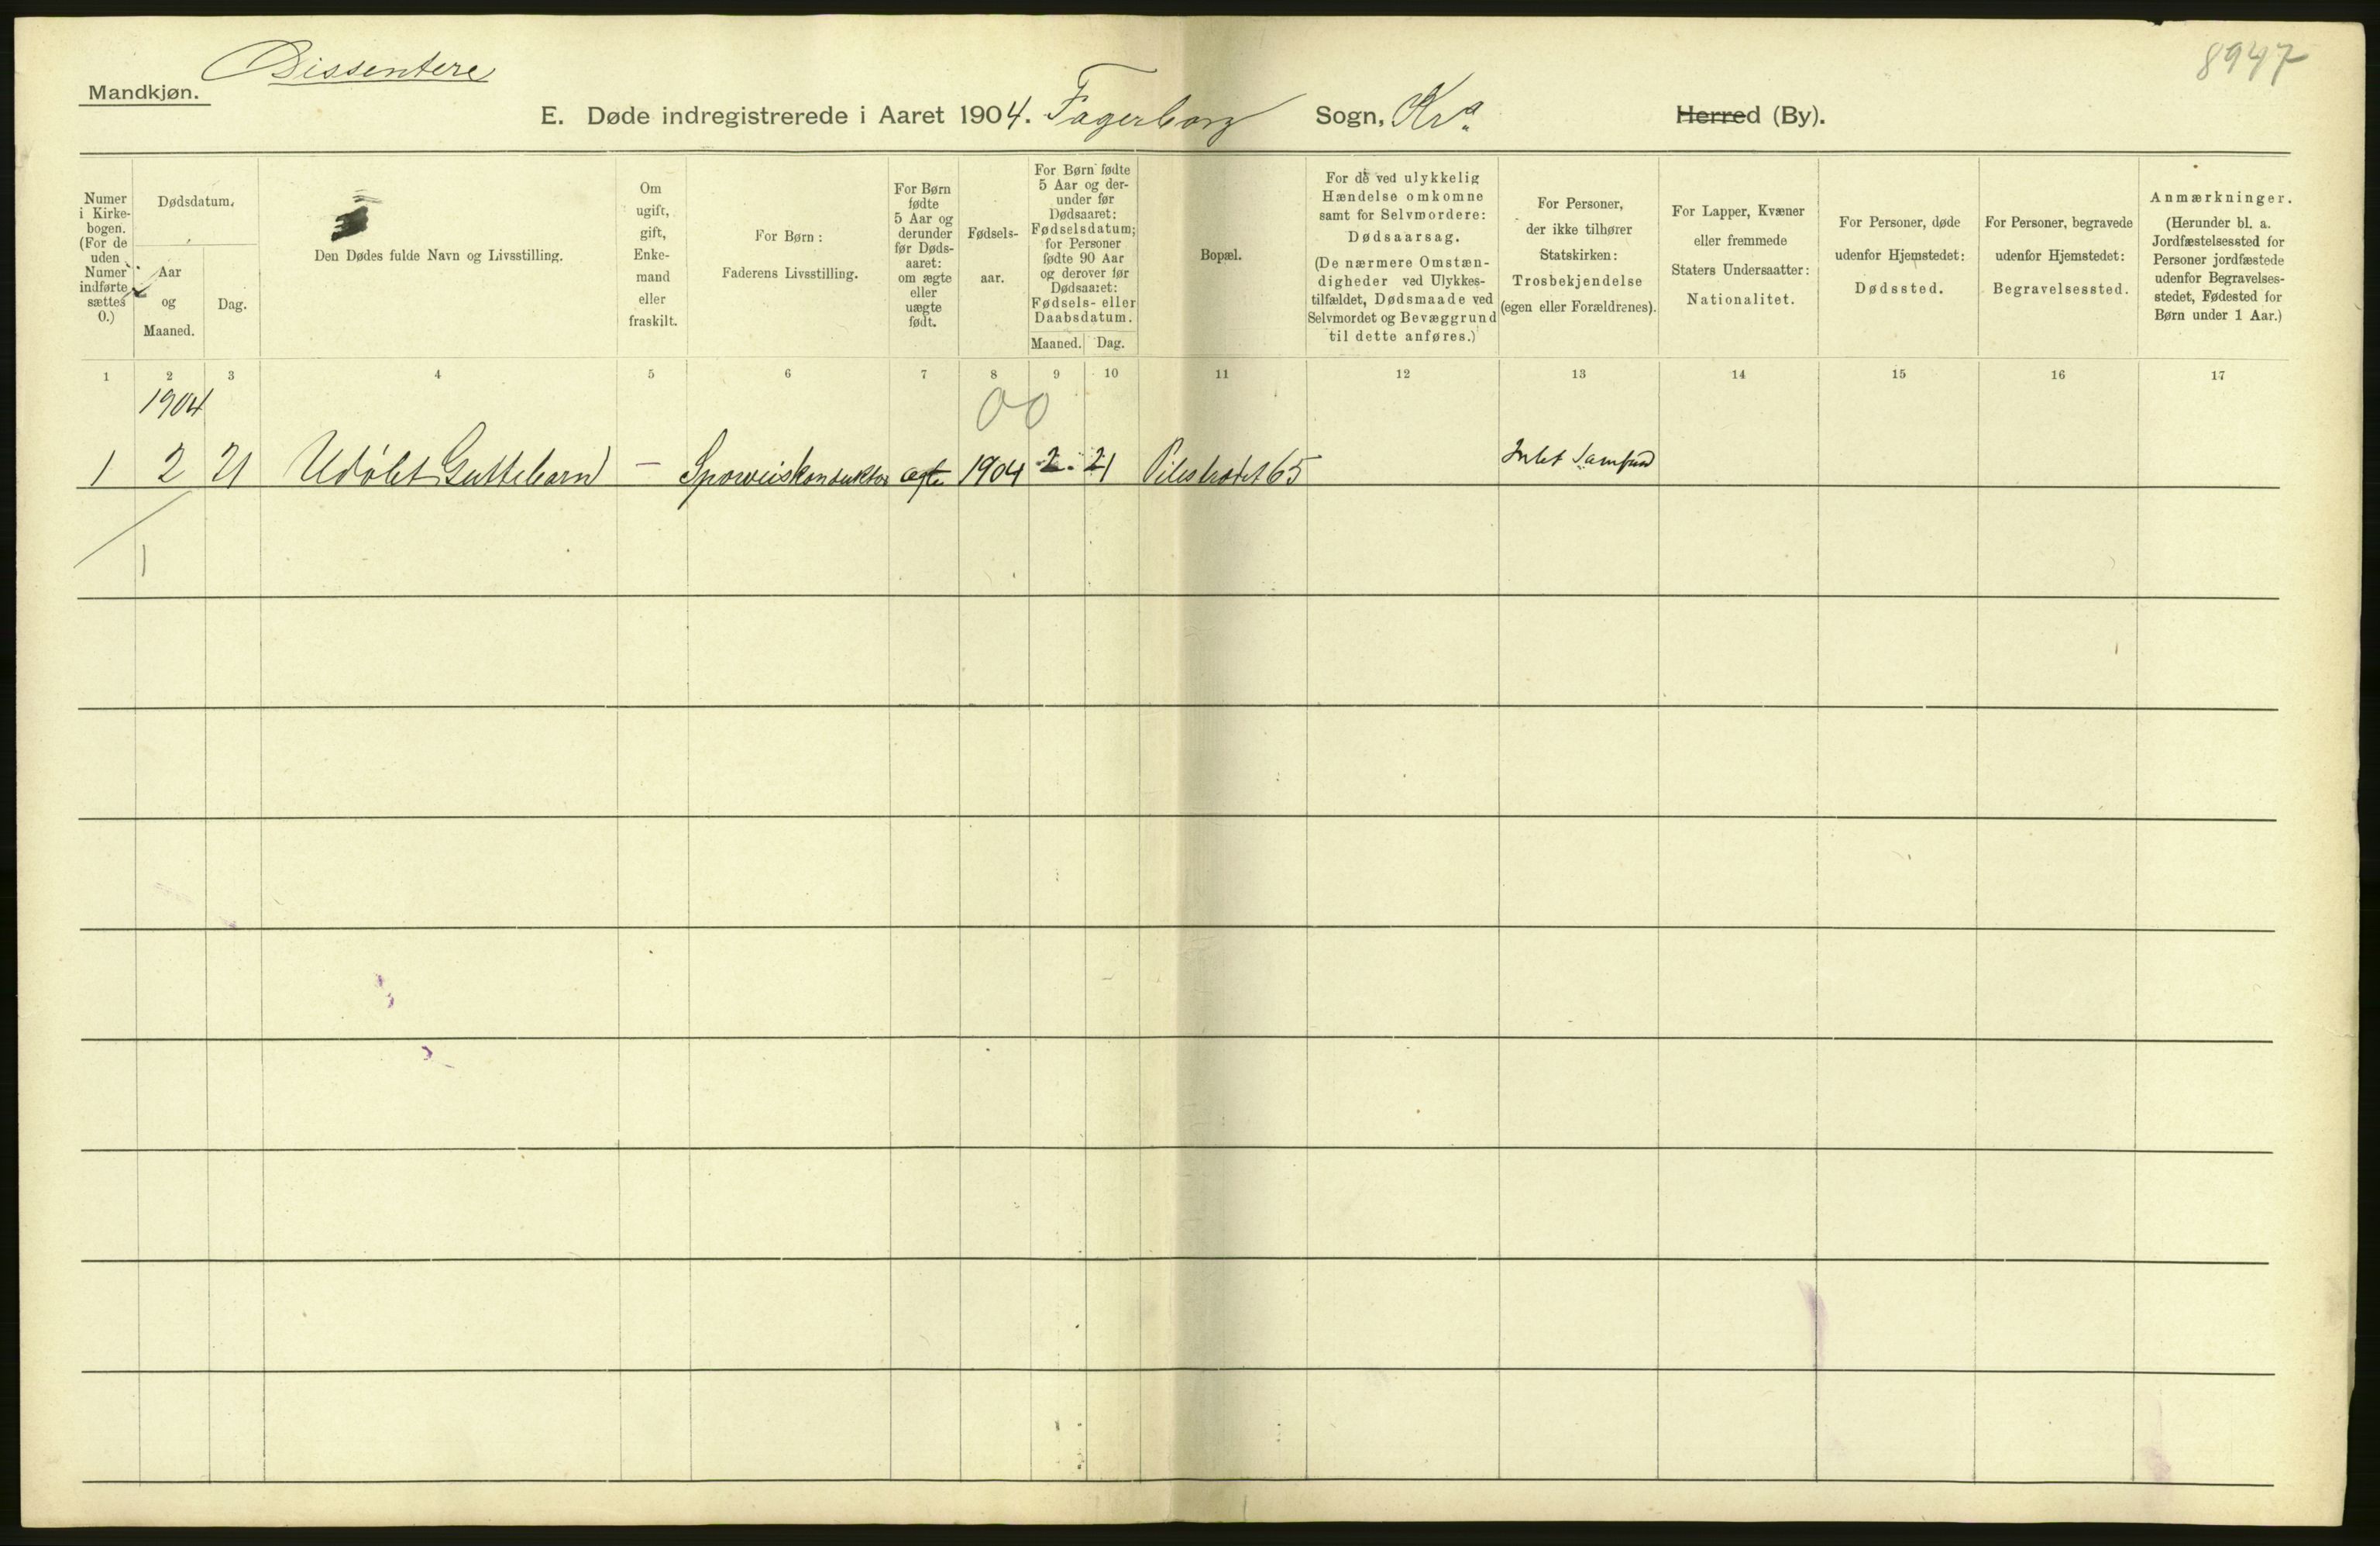 8947
Dissentere
Mandkjøn.
E. Døde indregistrerede i Aaret 1904. Fagerborg Sogn, Kra. Herred (By).
Numer
i Kirke-
bogen.
(For de
uden
Numer
indførte
sættes
0.)
Dødsdatum.
Aar
og
Maaned.
Dag.
Den Dødes fulde Navn og Livsstilling.
Om
ugift,
gift,
Enke-
mand
eller
fraskilt.
For Børn:
Faderens Livsstilling.
For Børn
fødte
5 Aar og
derunder
før Døds-
aaret:
om ægte
eller
uægte
født.
Fødsels-
aar.
For Børn fødte
5 Aar og der-
under før
Dødsaaret:
Fødselsdatum;
for Personer
fødte 90 Aar
og derover før
Dødsaaret:
Fødsels- eller
Daabsdatum.
Maaned. Dag.
Bopæl.
For de ved ulykkelig
Hændelse omkomne
samt for Selvmordere:
Dødsaarsag.
(De nærmere Omstæn-
digheder ved Ulykkes-
tilfældet, Dødsmaade ved
Selvmordet og Bevæggrund
til dette anføres.)
For Personer,
der ikke tilhører
Statskirken:
Trosbekjendelse
(egen eller Forældrenes).
For Lapper, Kvæner
eller fremmede
Staters Undersaatter:
Nationalitet.
For Personer, døde
udenfor Hjemstedet:
Dødssted.
For Personer, begravede
udenfor Hjemstedet:
Begravelsessted.
Anmærkninger.
(Herunder bl. a.
Jordfæstelsessted for
Personer jordfæstede
udenfor Begravelses-
stedet, Fødested for
Børn under 1 Aar.)
1 2 3 4 5 6 7 8 9 10 11 12 13 14 15 16 17
1904
00
1 2 21 Udøbt Guttebarn — Sporveiskonduktør ægte 1904 2. 21 Pilestrædet 65 Intet Samfund
1